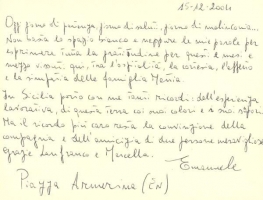 15-12-2001
Oggi giorno di partenza, giorno di saluti, giorno di malinconia...
Non basta lo spazio bianco e neppure le mie parole per
esprimere tutta la gratitudine per questi mesi e
mezzo vissuti qui, tra l'ospitalità, la cortesia, l'affetto
e la simpatia della famiglia
In Sicilia porto con me tanti ricordi: dell'esperienza
lavorativa, di questa terra coi suoi colori e i suoi sapori.
Ma il ricordo più caro resta la convinzione della
compagnia e dell'amicizia di due persone meravigliose
grazie Gianfranco e Marcella.
Emanuele
Piazza Armerina (EN)